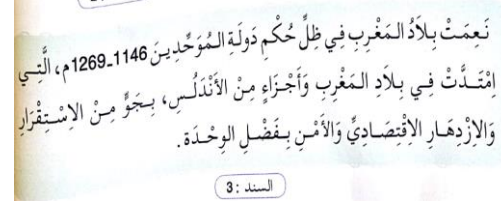 نَعِمَتْ بِلاَدُ المَغْرِبِ فِي ظِلِّ حُكْمِ دَولَةِ المُوَحِّدِينَ 1146-1269م، الَّتِي
اِمْتَدَّتْ فِي بِلاَدِ المَغْرِبِ وَأَجْزَاءٍ مِنْ الأَنْدَلُسِ، بِجَوٍّ مِنْ الاِسْتِقْرَارِ
وَالاِزْدِهَارِ الاِقْتِصَادِيِّ وَالأَمْنِ بِفَضْلِ الوِحْدَةِ.
السند : 3